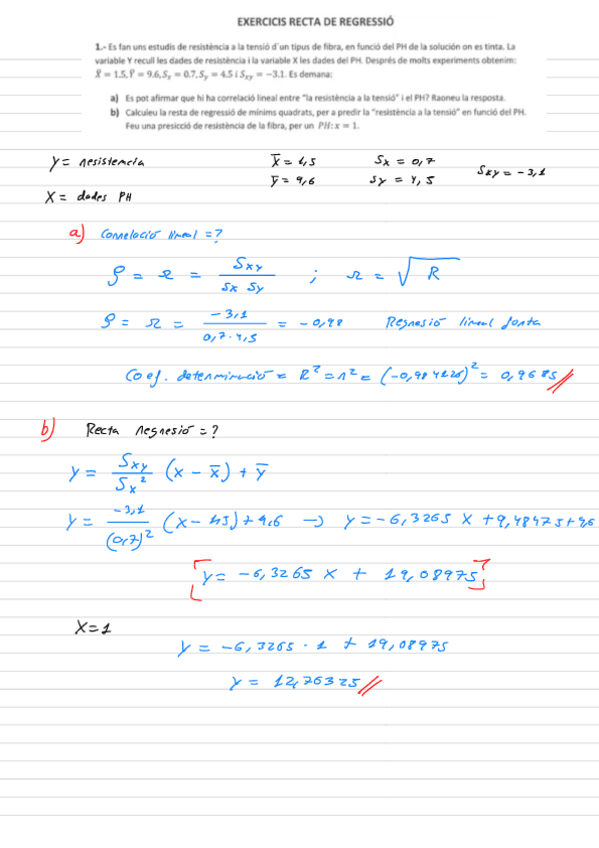 EXERCICIS RECTA DE REGRESSIÓ
1.- Es fan uns estudis de resistència a la tensió d'un tipus de fibra, en funció del PH de la solución on es tinta. La
variable Y recull les dades de resistència i la variable X les dades del PH. Després de molts experiments obtenim:
X̄ = 1.5, Ȳ = 9.6, Sx = 0.7, Sy = 4.5 i Sxy = −3.1. Es demana:
a) Es pot afirmar que hi ha correlació lineal entre "la resistència a la tensió" i el PH? Raoneu la resposta.
b) Calculeu la resta de regressió de mínims quadrats, per a predir la "resistència a la tensió" en funció del PH.
Feu una presicció de resistència de la fibra, per un PH: x = 1.
Y = resistencia X̄ = 1,5 Sx = 0,7 Sxy = −3,1
Ȳ = 9,6 Sy = 4,5
X = dades PH
a) Correlació lineal = ?
ρ = r = Sxy / Sx Sy ; r = √R
ρ = r = −3,1 / 0,7·4,5 = −0,98 Regresió lineal forta
Coef. determinació = R² = r² = (−0,984126)² = 0,9685
b) Recta regresió = ?
Y = Sxy / Sx² (X − X̄) + Ȳ
Y = −3,1 / (0,7)² (X − 1,5) + 9,6 → Y = −6,3265 X + 9,48975 + 9,6
Y = −6,3265 X + 19,08975
X = 1
Y = −6,3265 · 1 + 19,08975
Y = 12,76325